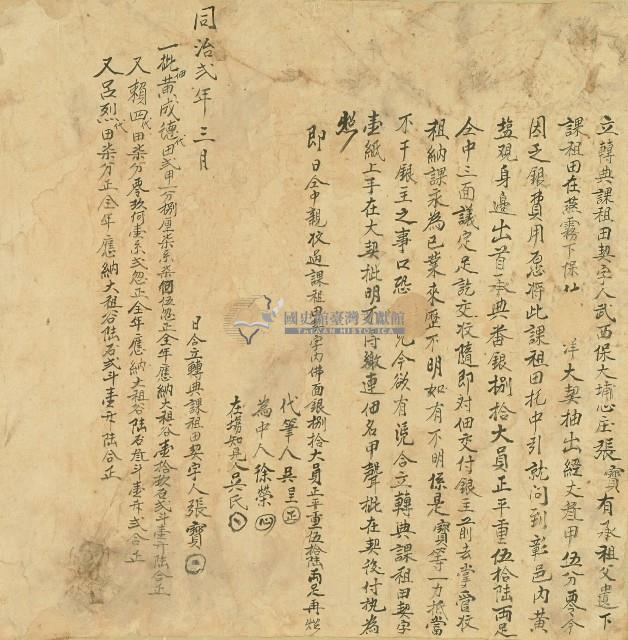 立轉典課租田契字人武西保大埔心庄張寶有承祖父遺下
課租田在燕霧下保仙 洋大契抽出經丈叁甲伍分零今
因乏銀費用愿將此課租田托中引就问到彰邑內黃
盐視身邊出首承典番銀捌拾大員正平重伍拾陸両足
仝中三面議定足訖交收隨即对佃交付銀主前去掌管收
租納課永為己業來歷不明如有不明係是寶等一力抵當
不干銀主之事口恐 凭今欲有凭合立轉典課租田契字
壹紙上手在大契批明不得繳連佃名甲聲批在契後付执為
炤
即日仝中親收过課租田 字內佛面銀捌拾大員正平重伍拾陸両足再炤
代筆人吳呈
為中人徐榮
在塲知見人吳氏
日仝立轉典課租田契字人張寶
同治弍年三月
一批佃黃成德代田弍甲一分捌厘柒系 伍忽正全年應納大租谷壹拾玖石弍斗壹升陸合正
又賴四代田柒分零玖何壹系弍忽正全年應納大租谷陸石 斗壹升弍合正
又呂烈代田柒分正全年應納大租谷陸石弍斗壹升陸合正
國史館臺灣文獻館
TAIWAN HISTORICA